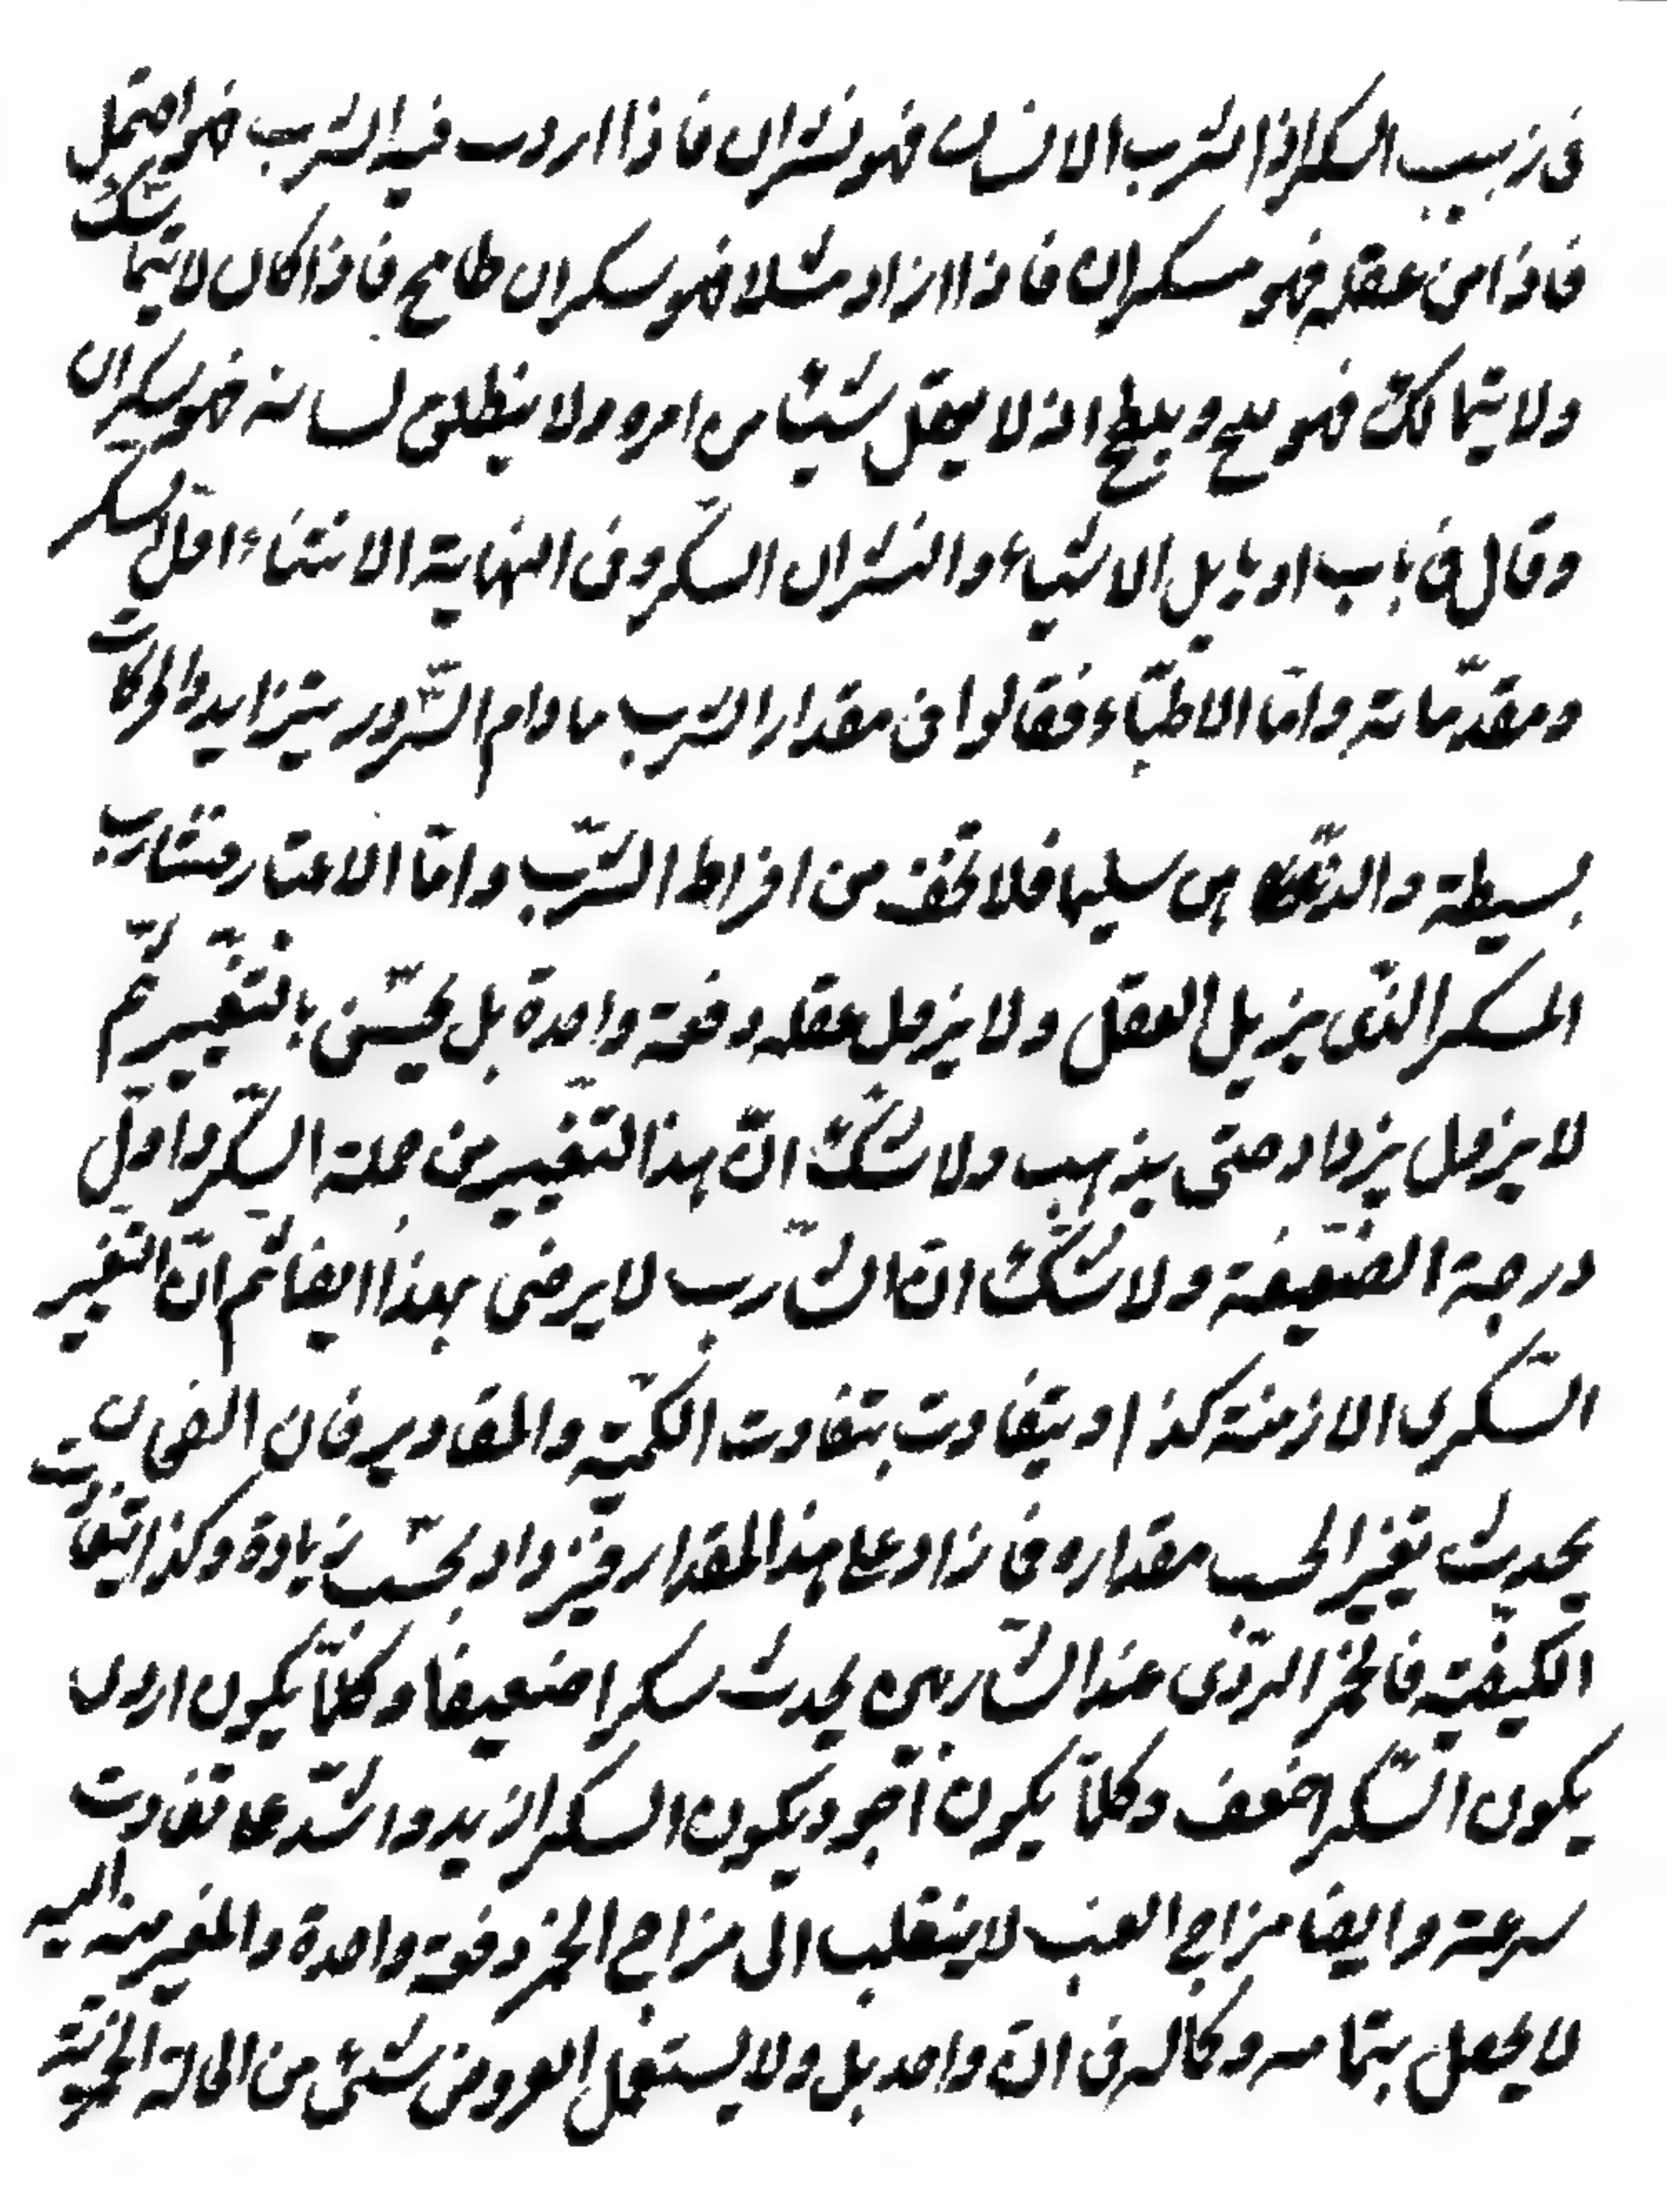 فى زبيب السكر اذا شرب الانسان فهو نشوان فاذا اردت فيه الشرب فهو احتمل
فاذا من عقله فهو سكران فاذا ازداد مثلا فهو سكران طامح فاذا كان لا يتماسك
ولا يتمالك فهو ملح وبلطح اذ لا يعقل شيئا من امره ولا ينطلق لسانه فهو سكران
وقال فى باب اويايل الاشياء والنشوان السكر وفى النهاية الانتشاء اول السكر
ومقدماته واما الاطباء فقالوا فى مقدار الشرب ما دام السرور يتزايد والحركات
بسيطة والذهن سليما فلا تخف من افراط الشرب واما الاعتبار فشارب
المسكر الذى يزيل العقل ولا يزول عقله دفعة واحدة بل يحسن بالتغيير ثم
لا يزول يزداد حتى يذهب ولا شك ان هذا التغيير من جملة السكر واول
درجة الضعيفة ولا شك ان الشارب لا يرضى بهذا ايضا ثم ان التغير
السكرى الازمنة كذا ويتفاوت بتفاوت الكمية والمقادير فان الفجان
يحدث تغير الحسب مقداره فما زاد على هذا المقدار فيزداد بحسب زيادة وكذا يتفاوت
الكيفية فالخمر الردى عند الشاربين يحدث سكرا ضعيفا وكلما يكون اردى
يكون السكر اضعف وكلما يكون اجود يكون السكر ازيد واشد على تفاوت
سرعة وايضا مزاج العنب لا ينقلب الى مزاج الخمر دفعة واحدة والمغير منه اليه
لا يحصل بتمامه وكماله فى آن واحد بل ولا يستعمل العروض شئ من الحالة الخمرية